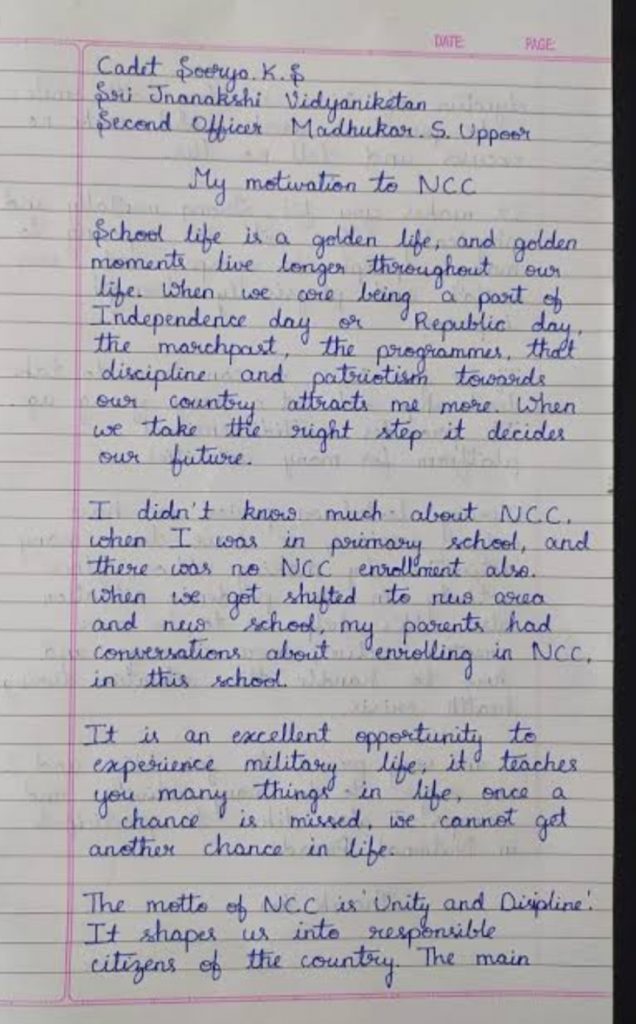 DATE: PAGE:
Cadet Sooryo. K. S
Sri Jnanakshi Vidyaniketan
Second Officer Madhukar. S. Uppoor
My motivation to NCC
School life is a golden life, and golden
moments live longer throughout our
life. When we are being a part of
Independence day or Republic day,
the marchpast, the programmes, that
discipline and patriotism towards
our country attracts me more. When
we take the right step it decides
our future.
I didn't know much about NCC.
when I was in primary school, and
there was no NCC enrollment also.
When we got shifted to new area
and new school, my parents had
conversations about enrolling in NCC,
in this school.
It is an excellent opportunity to
experience military life, it teaches
you many things in life, once a
chance is missed, we cannot get
another chance in life.
The motto of NCC is 'Unity and Disipline'.
It shapes us into responsible
citizens of the country. The main